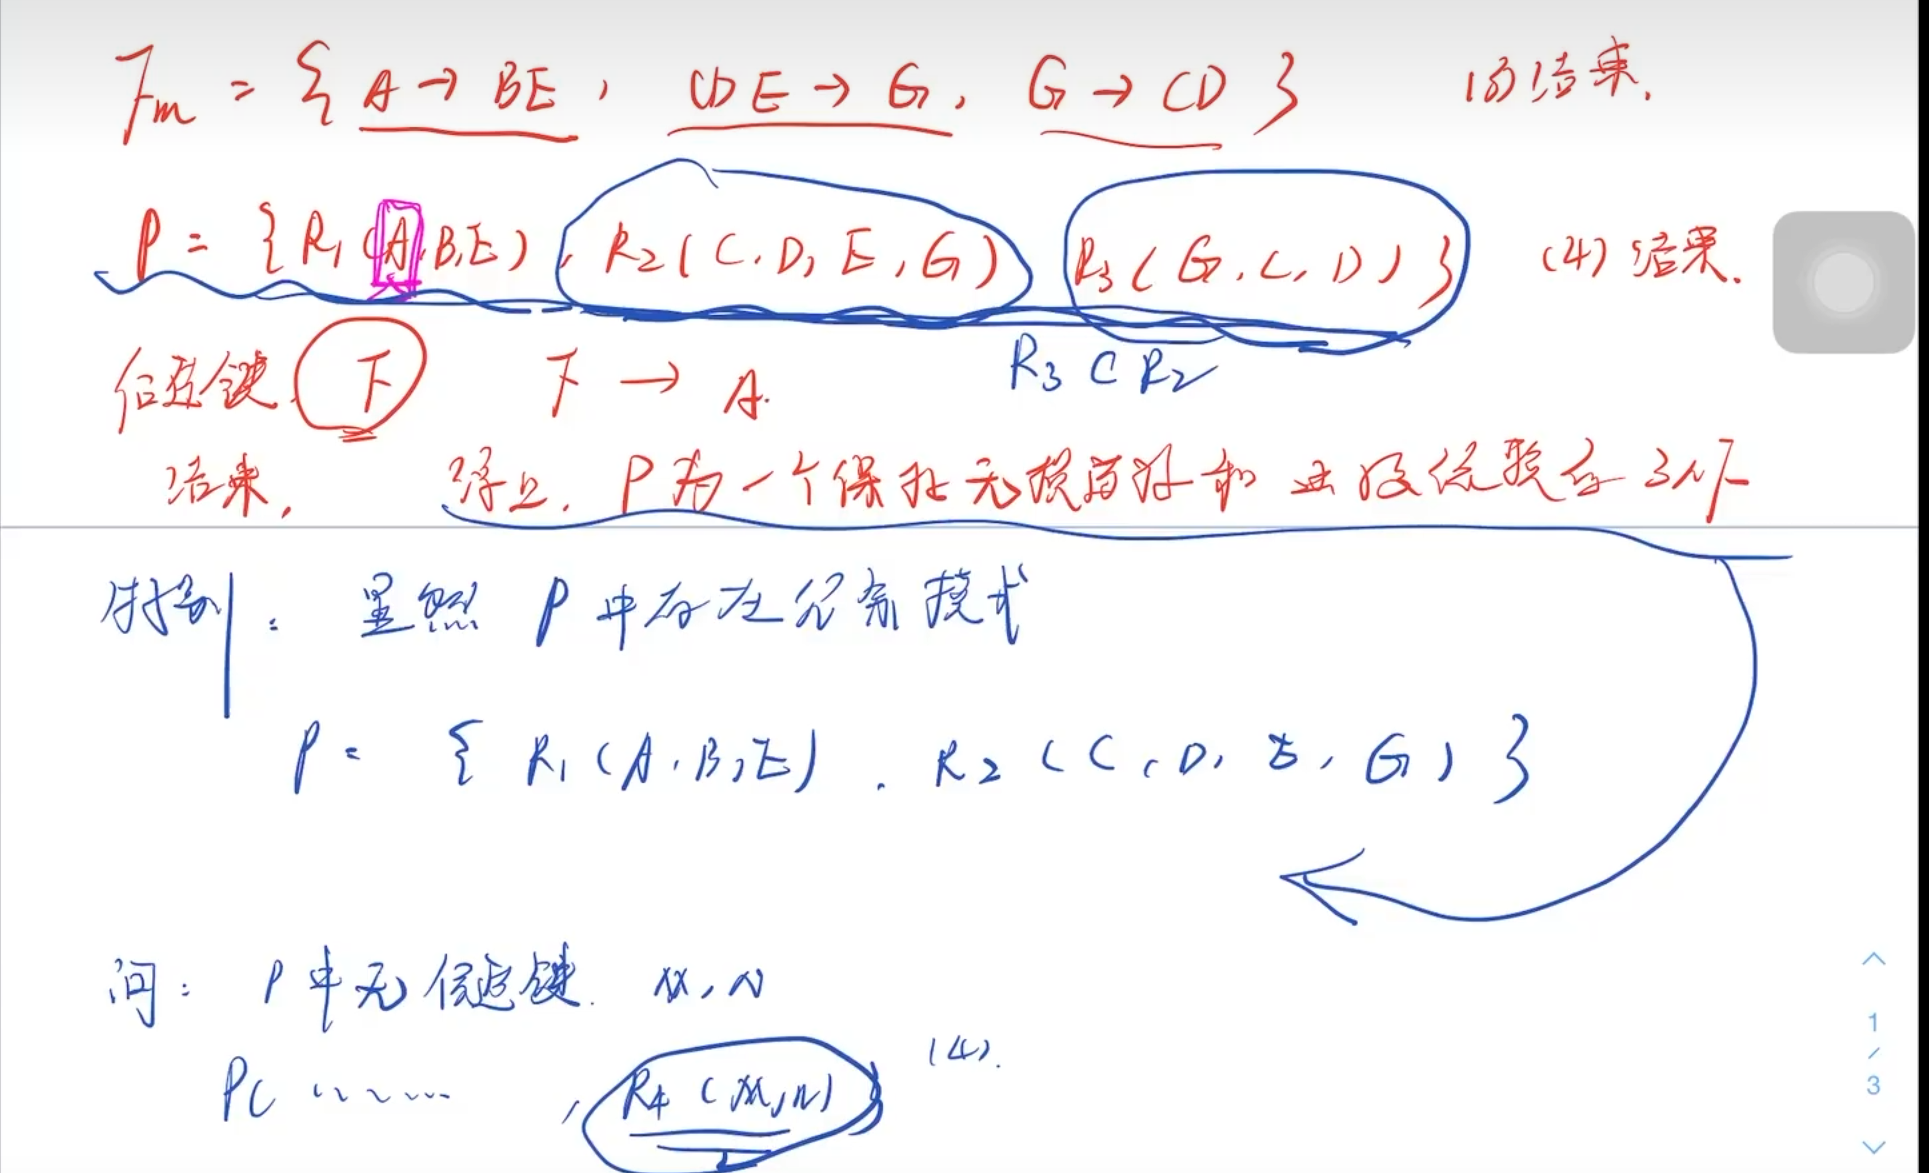 Fm = { A → BE, CDE → G, G → CD } (3)结果.
ρ = { R1(A,B,E), R2(C,D,E,G) R3(G,C,D) } (4)结果.
候选键 下 下 → A. R3 ⊂ R2
结果, 综上, ρ为一个保持无损 和
特别: 显然 ρ中存在冗余模式
ρ = { R1(A,B,E). R2(C,D,E,G) }
问: ρ中无候选键. M,N
ρ( ......, R4(M,N) } (4).
1
/
3